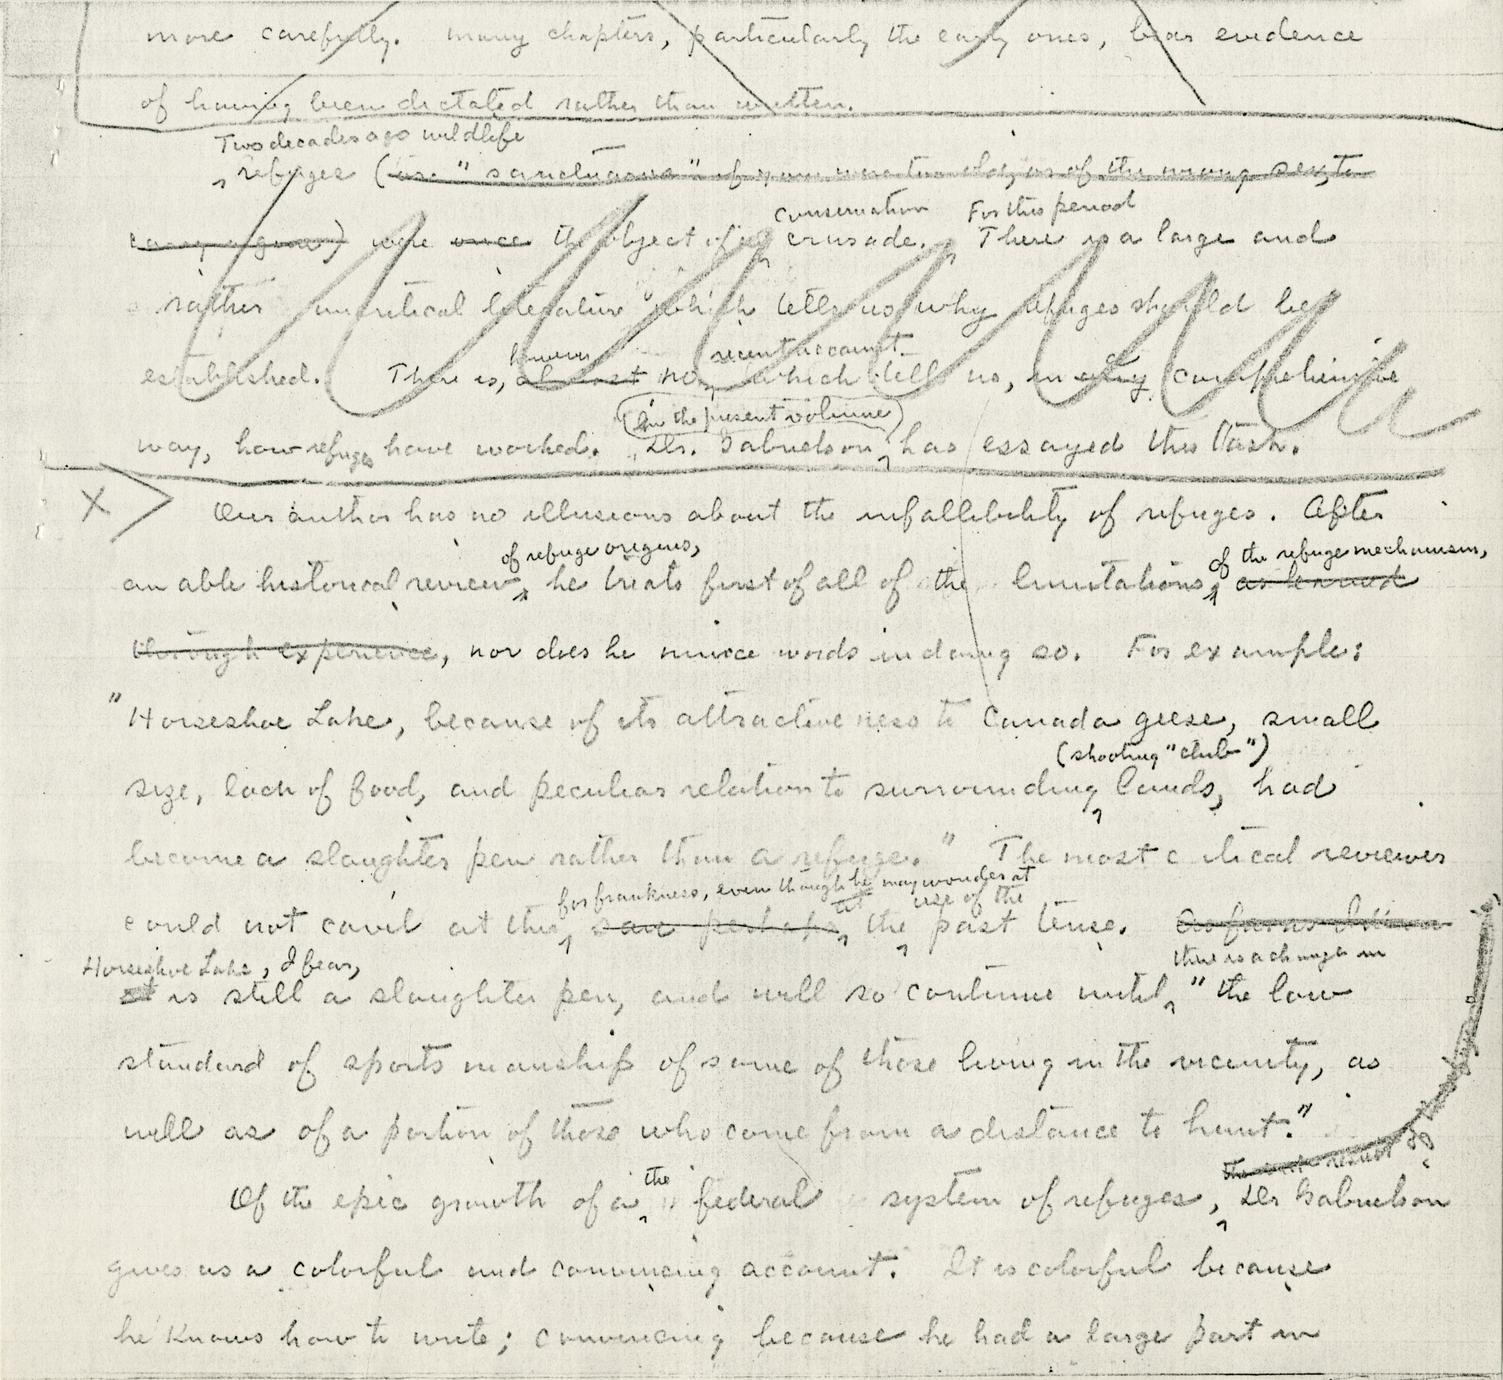 more carefully. Many chapters, particularly the early ones, bear evidence
of having been dictated rather than written.
Two decades ago wildlife
refuges (or "sanctuaries" if you were too old, or of the wrong sex, to
carry a gun) were once the object of a crusade. There is a large and
conservation For this period
rather uncritical literature which tells us why refuges should be
established. There is, almost no, which tells us, in any comprehensive
however recent account
(in the present volume)
way, how refuges have worked. Dr. Gabrielson has essayed this task.
X
Our author has no illusions about the infallibility of refuges. After
of refuge origins, of the refuge mechanism,
an able historical review, he treats first of all of the limitations, as learned
through experience, nor does he mince words in doing so. For example:
"Horseshoe Lake, because of its attractiveness to Canada geese, small
(shooting "club")
size, lack of food, and peculiar relation to surrounding lands, had
become a slaughter pen rather than a refuge." The most critical reviewer
for frankness, even though he may wonder at
at use of the
could not cavil at this, save perhaps the past tense. As far as I know
Horseshoe Lake, I fear, there is a change in
it is still a slaughter pen, and will so continue until "the low
standard of sportsmanship of some of those living in the vicinity, as
well as of a portion of those who come from a distance to hunt."
the
Of the epic growth of a federal system of refuges, Dr Gabrielson
gives us a colorful and convincing account. It is colorful because
he knows how to write; convincing because he had a large part in